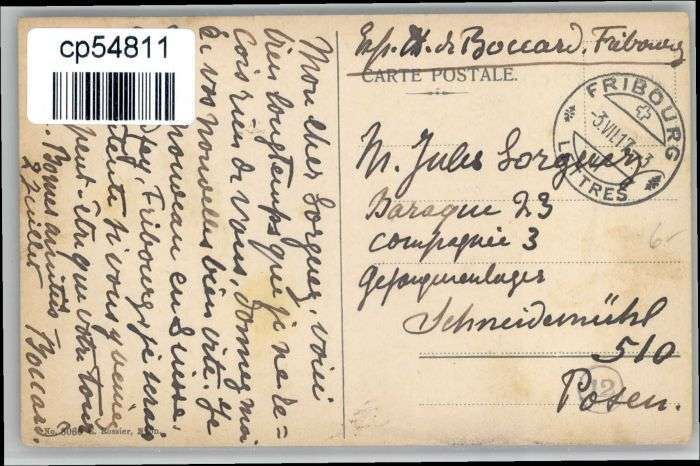 cp54811
Exp. H. de Boccard, Fribourg
CARTE POSTALE.
FRIBOURG
LETTRES
-3.VII.17
M. Jules Sorguez
Baraque 23
Compagnie 3
Gefangenenlager
Schneidemühl
510
Posen.
12
6.-
Mon cher Sorguez, voici
bien longtemps que je ne re=
çois rien de vous, donnez moi
de vos nouvelles bien vite. Je
nouveau en Suisse,
Fribourg, je serais
si vous y veniez
peut-être que votre tour
Bonnes amitiés Boccard.
2 Juillet
No. 506 Rossier,